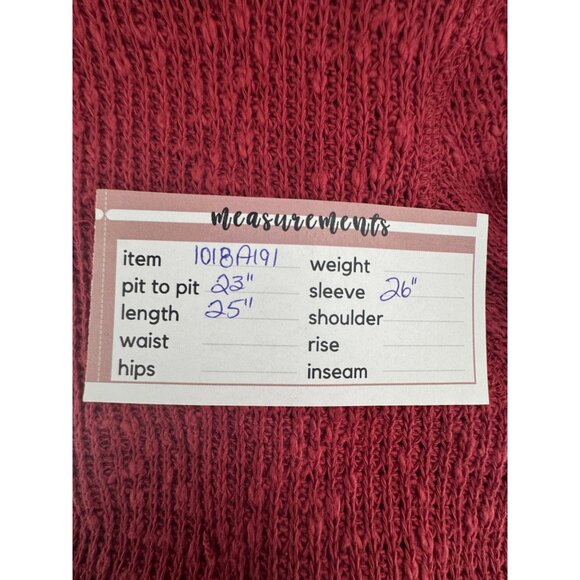 measurements
item 1018A191 weight
pit to pit 23" sleeve 26"
length 25" shoulder
waist rise
hips inseam